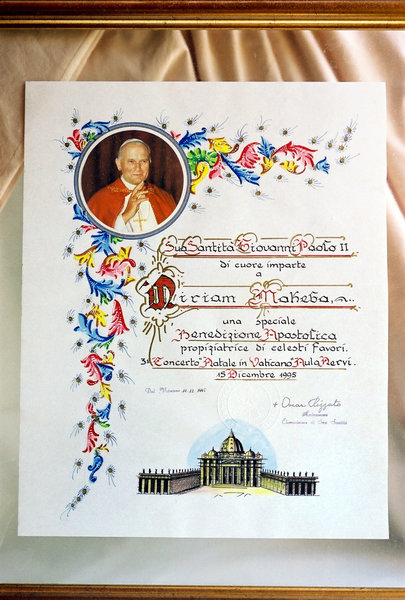 Sua Santità Giovanni Paolo II
di cuore imparte
a
Miriam Makeba,
una speciale
Benedizione Apostolica
propiziatrice di celesti favori.
3° Concerto "Natale in Vaticano" Aula Nervi.
15 Dicembre 1995
Dal Vaticano
+ Oscar Rizzato
Elemosiniere di Sua Santità